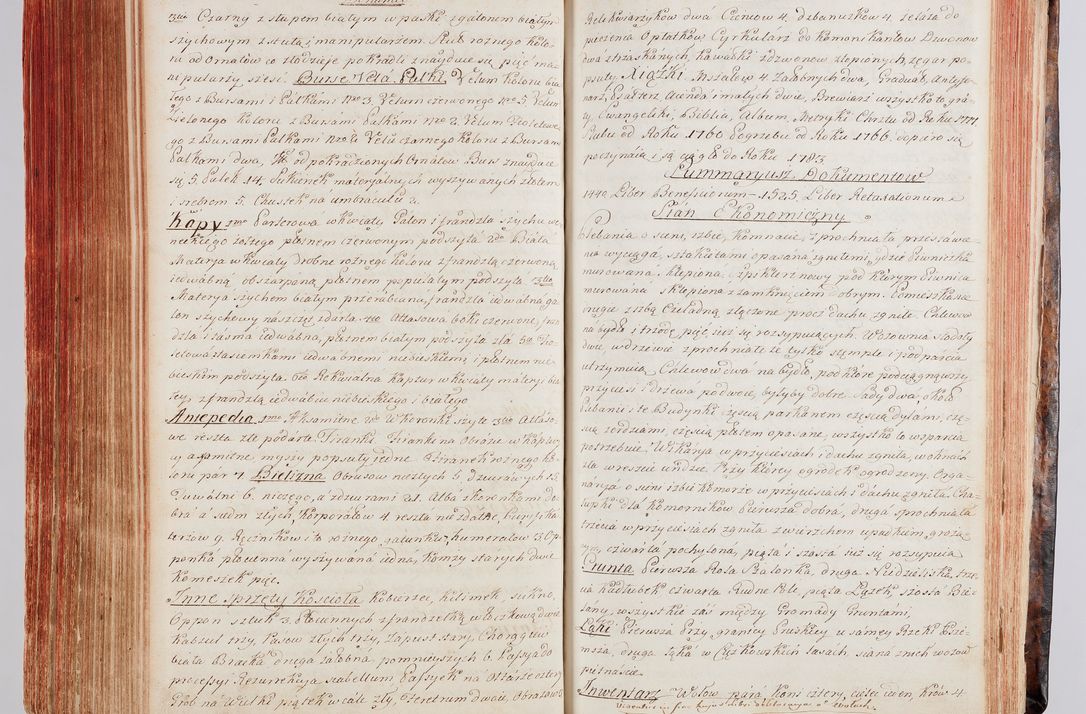 3tio Czarny z słupem białym w paski z galonem białym
szychowym z stułą i manipularzem. Stuł rożnego kolo-
ru od Ornatow co złodzieje pokradli znayduie się pięć ma-
nipularzy sześć. Bursę Vela Palki Velum koloru bia-
łego z Bursami i Palkami Nro 3. Velum czerwonego Nro 5. Velum
Zielonego koloru z Bursami Palkami Nro 2. Velum Fioletowe-
go z Bursami Palkami Nro Velu czarnego koloru z Bursam
Palkami dwa, od pokradzionych Ornatow Burs znayduie
się 5. Palek 14. Sukienek materjalnych wyszywanych złotem
i srebrem 5. Chustek na umbraculu 2.
Kapy 1mo Parterowa w kwiaty Galon i frandzla szychu we-
neckiego żołtego płotnem czerwonym podszyta 2do Biała
Materya w kwiaty drobne rożnego koloru z frandzlą czerwoną
iedwabną obszarpana, płotnem popielatym podszyta 3tio
Materya szychem białym przerabiana, frandzla iedwabna, ga-
lon szychowy naszczey zdarta 4to Attasowa boki czerwone, fran-
dzla i taśma iedwabna, płotnem białym podszyta zła 5to Fio-
letowa z tasiemkami iedwabnemi niebieskiemi i płotnem nie-
bieskim podszyta. 6ta Rekwialna kaptur w kwiaty materyi bia-
łey, z frandzlą iedwabiu niebieskiego i białego
Antepedia 1mo Aksamitne 2do w Koronki szyte 3tio Atłaso-
we reszta złe podarte Firanki Firanki na Obrazie w Kaplicy
y axamitne myszy popsuły iedne Firanek rożnego ko-
loru par 7. Bielizna Obrusow nozłych 5. dziurawych 15.
Tuwalni 6. niczego, a z dziurami 21. Alba z korenkami do-
bra a siedm złych, Korporałow 4. reszta nie zdatne, Puryfika-
terzow 9. Ręcznikow 10 rożnego gatunku, humerałow 3. Op-
ponka płocienna wyszywana iedna, Komży starych dwie
Komeszek pięć.
Inne sprzęty Kościoła Kobierzec, Kilimek, sukno,
Oppon sztuk 3. Płociennych z frandzelką włoczkową dwie
Kabzul trzy, Pasow złych trzy, Zapust stary, Chorągiew
biała Bracka, druga żałobna pomnieyszych 6. Passyia do
processyi Rezurrekcyia scabellum Passyiek na Ołtarze cztery
Grob na Wielki piątek w cale zły, Feretrum dwoie, Obrazow
Relikwiarzykow dwa Cieniow 4. Dzbanuszkow 4. Żelaza do
pieczenia Opłatkow Cyrkularz do Komonikantow Dzwonow
dwa ztrzaskanych, kawałki z dzwonow ztopionych, zegar po-
psuty Xiążki Mszałow 4. Żałobnych dwa, Graduał, Antyfo-
narz, Psałterz Agenda i małych dwie, Brewiarz wszystko to gra-
ty, Ewangeliki, Biblia, Album, Metryki Chrztu od Roku 1771
Slubu od Roku 1760 Pogrzebu od Roku 1766. dopiero się
poczynaią i są ciągłe do Roku 1783
Summaryusz Dokumentow
1440. Liber Beneficiorum – 1525. Liber Retaxationum –
Stan Ekonomiczny
Plebania o sieni, izbie, Komnacie, z prochniała przestawie-
nia wyciąga, sztakietami opasana zgnitemi, gdzie Piwniczka
murowana sklepiona. Spiklerz nowy pod którym Piwnica
murowana sklepiona z zamknięciem dobrym. Pomieszkanie
drugie z izbą Czeladną złączone precz dachu zgniłe. Chlewow
na bydło i trzodę pięć iuż się rozsypuiących. Wozownia Stodoły
dwie, w drzewie zprochniałe że tylko stęmple i podparcia
utrzymuią Chlewow dwa na bydło, pod które podciągnąwszy
przyciesi i drzewa podwoie, byłyby dobre. Sady dwa, około
Plebanii i te Budynki częścią parkanem częścią dylami, czę-
ścią żerdziami, częścią płotem opasane, wszystko to wsparcia
potrzebuie. Wikarya w przyciesiach i dachu zgniła, wolność
zła wreszcie uydzie. Przy którey ogrodek ogrodzony. Orga-
narza o sieni izbie Komorze w przyciesiach i dachu zgniła. Cha-
łupki dla Komornikow Pierwsza dobra, druga sprochniała
trzecia w przyciesiach zgniła z wierzchem upadkiem, grożą-
cym, czwarta pochylona, piąta i szosta iuż się rozsupuia
Grunta Pierwsza Rola Stalonka, druga Niedzieliska, trze-
cia Kadłubek czwarta Rudne Pole, piąta Lązek, szosta Bie-
lany, wszystkie zaś między Gromady Gruntami.
Łąki Pierwsza Przy granicy Pruskiey u samey Rzeki Prze-
msza, druga łąka w Ciężkowskich lasach, siana z nich wozow
piętnaście.
Inwentarz Wołow para, Koni cztery, cielec ieden, Krow 4